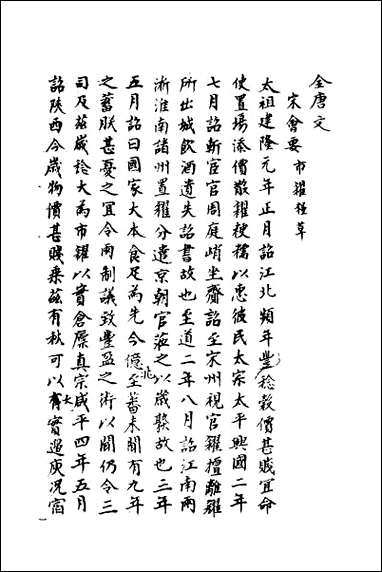 全唐文
宋會要 市糴糧草
太祖建隆元年正月詔江北頻年豐稔穀價甚賤宜命
使置場添價散糴粳糯以惠彼民太宗太平興國二年
七月詔斬宦官周庭峭坐齎詔至宋州視官糴擅離糴
所出城飲酒遺失詔書故也至道二年八月詔江南兩
淅淮南諸州置糴分遣京朝官蒞之以歲稔故也三年
五月詔曰國家大本食足為先今億兆至蕃未聞有九年
之蓄朕甚憂之宜令兩制議致豐盈之術以聞仍令三
司及茲歲諗大為市糴以實倉廩真宗咸平四年五月
詔陝西今歲物價甚賤來茲有秋可以大有實邊庾況宿